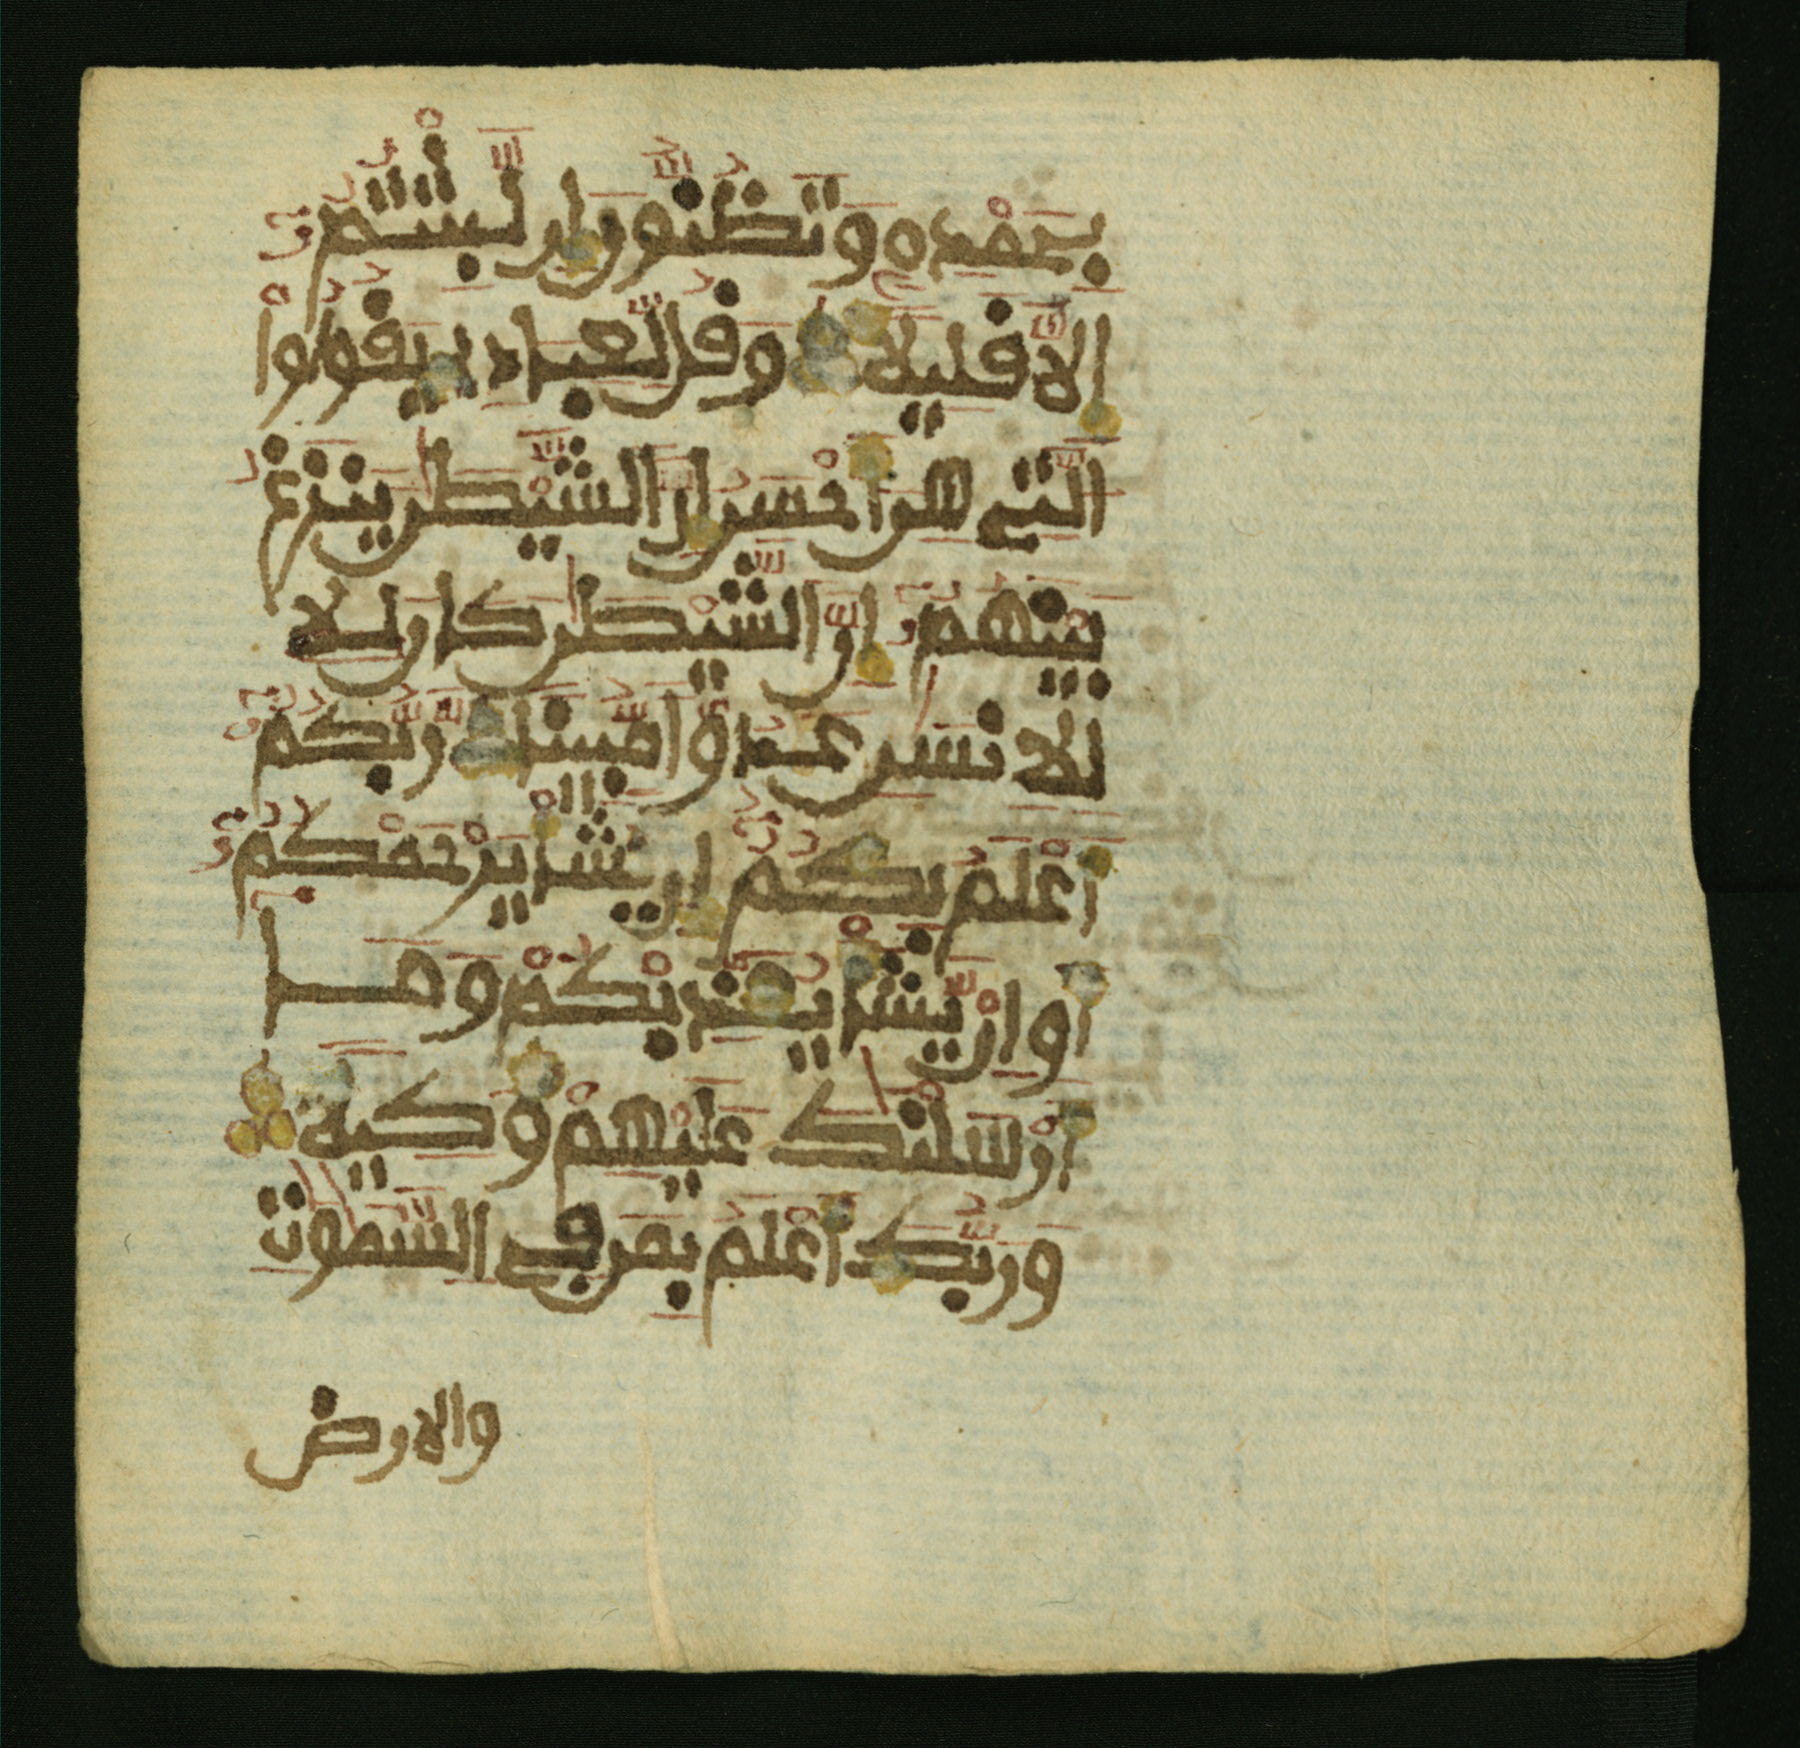 بحمده وتظنون ان لبثتم
الا قليلا وقل لعبادي يقولوا
التي هي احسن ان الشيطن ينزغ
بينهم ان الشيطن كان للا
للانسن عدوا مبينا ربكم
اعلم بكم ان يشا يرحمكم
او ان يشا يعذبكم وما
ارسلنك عليهم وكيلا
وربك اعلم بمن في السموت
والارض